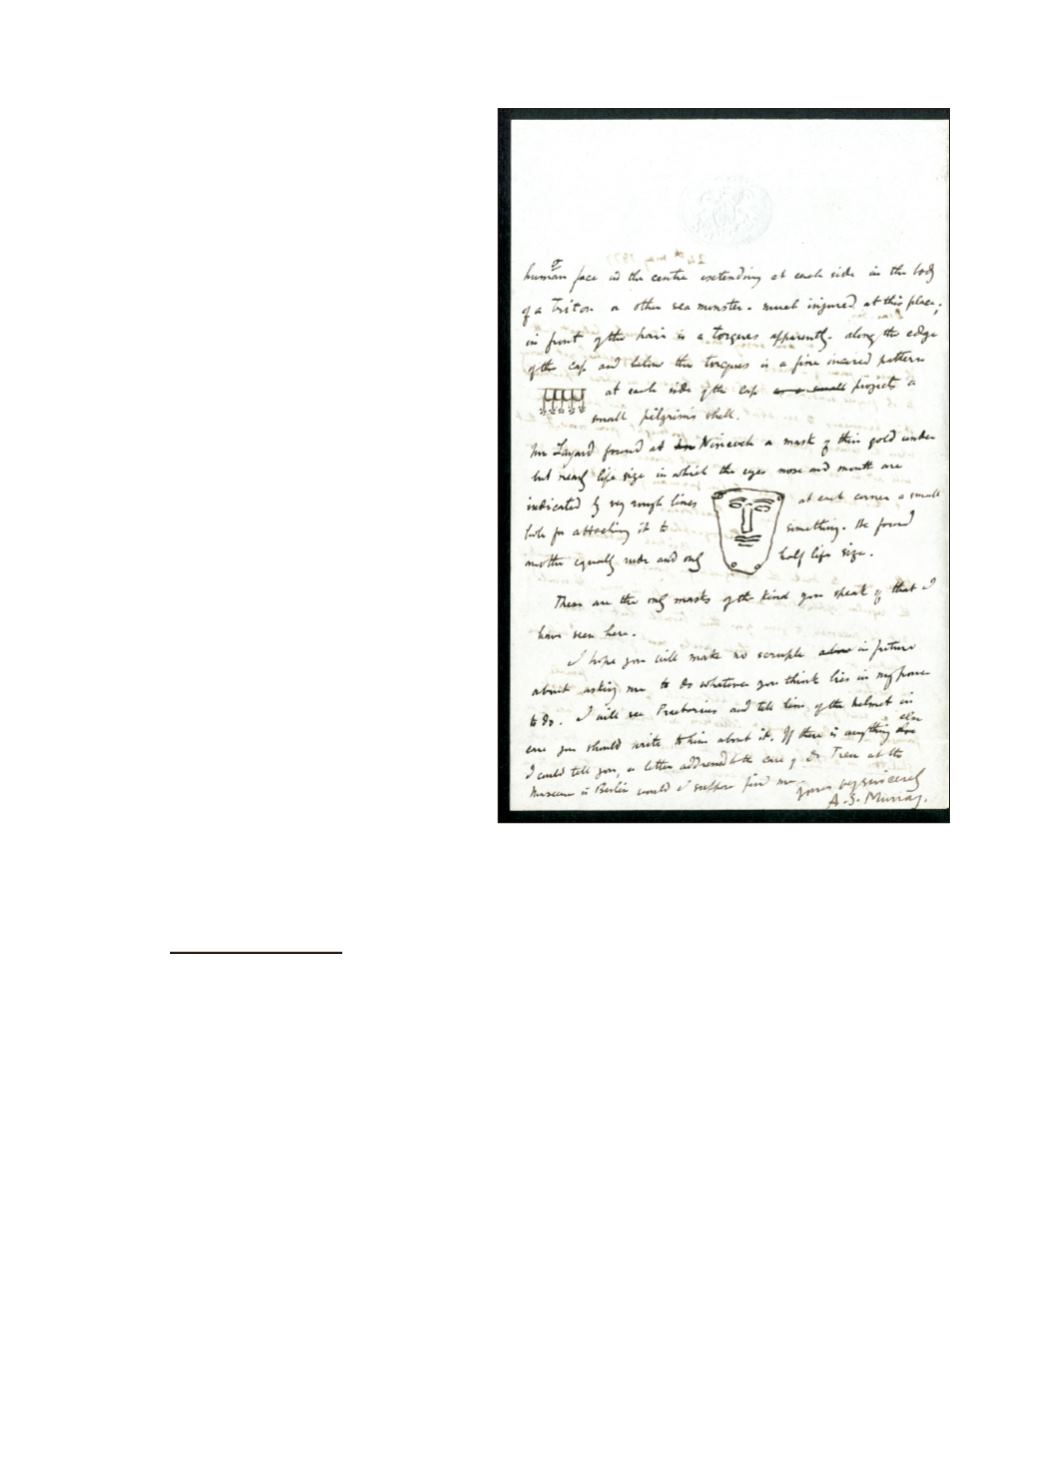 a
human face in the centre extending at each side in the body
of a Triton or other sea monster - much injured at this place;
in front of the hair is a torques apparently. along the edge
of the cap and below the torques is a fine incised pattern
at each side of the cap as a small projects a
small pilgrim's shell.
Mr Layard found at Nineveh a mask of thin gold under
but nearly life size in which the eyes nose and mouth are
indicated by very rough lines at each corner a small
hole for attaching it to something. He found
another equally rude and only half life size.
These are the only masks of the kind you speak of that I
have seen here.
I hope you will make no scruple in future
about asking me to do whatever you think lies in my power
to do. I will see and tell him of the helmet in
else
case you should write to him about it. If there is anything
I could tell you, a letter addressed to the care of Dr Treu at the
Museum in Berlin would I suppose find me.
yours very sincerely
A. S. Murray.